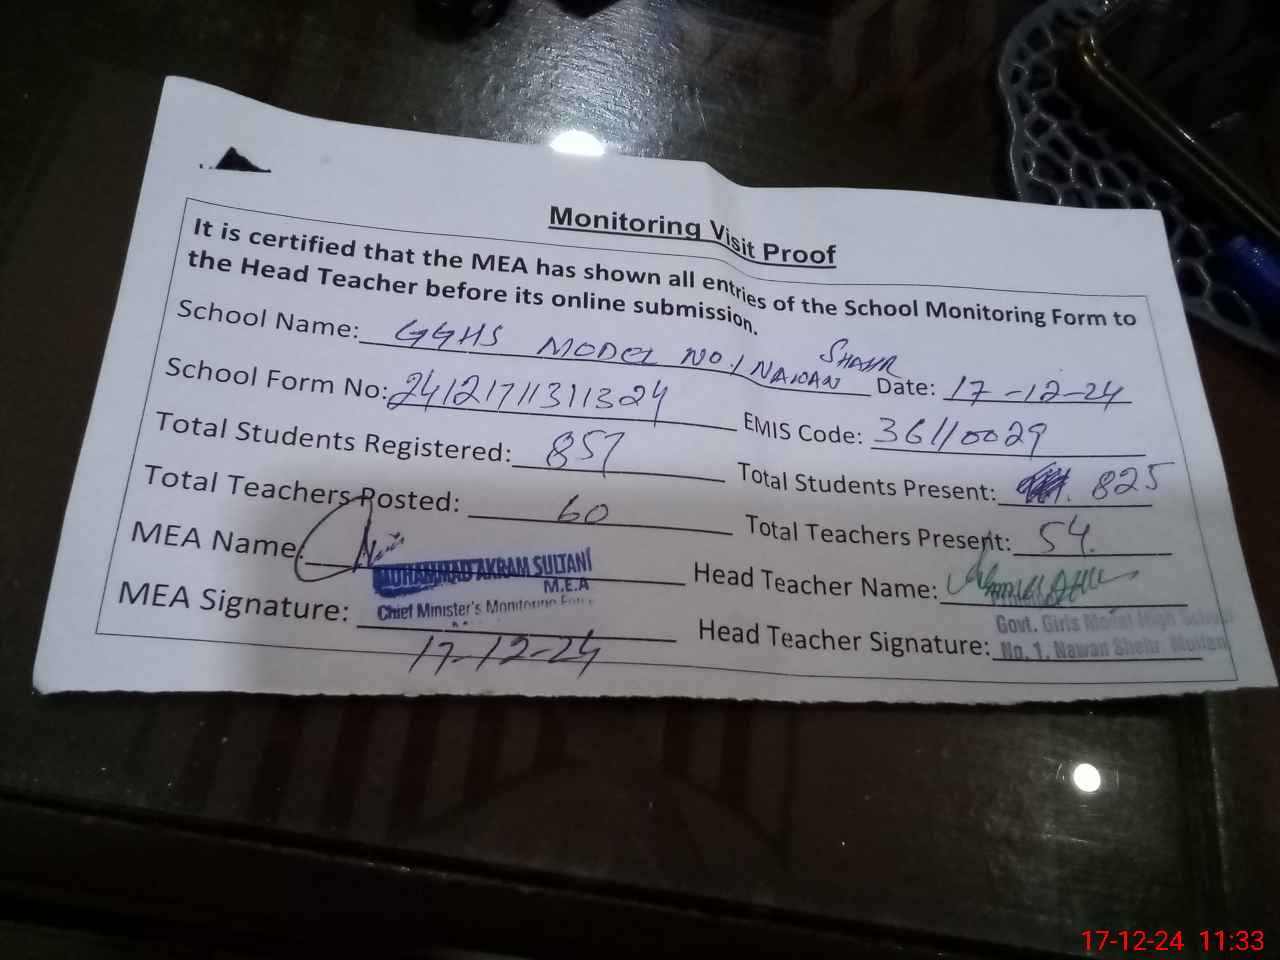 Monitoring Visit Proof
It is certified that the MEA has shown all entries of the School Monitoring Form to
the Head Teacher before its online submission.
School Name: GGHS MODEL NO.1 NAWAN SHAHR Date: 17-12-24
School Form No: 24121711311324 EMIS Code: 36110029
Total Students Registered: 857 Total Students Present: 825
Total Teachers Posted: 60 Total Teachers Present: 54
MEA Name: Head Teacher Name:
MUHAMMAD AKRAM SULTANI
M.E.A
Chief Minister's Monitoring Force
Govt. Girls Model High School
No. 1, Nawan Shehr Multan
MEA Signature: Head Teacher Signature:
17-12-24
17-12-24 11:33